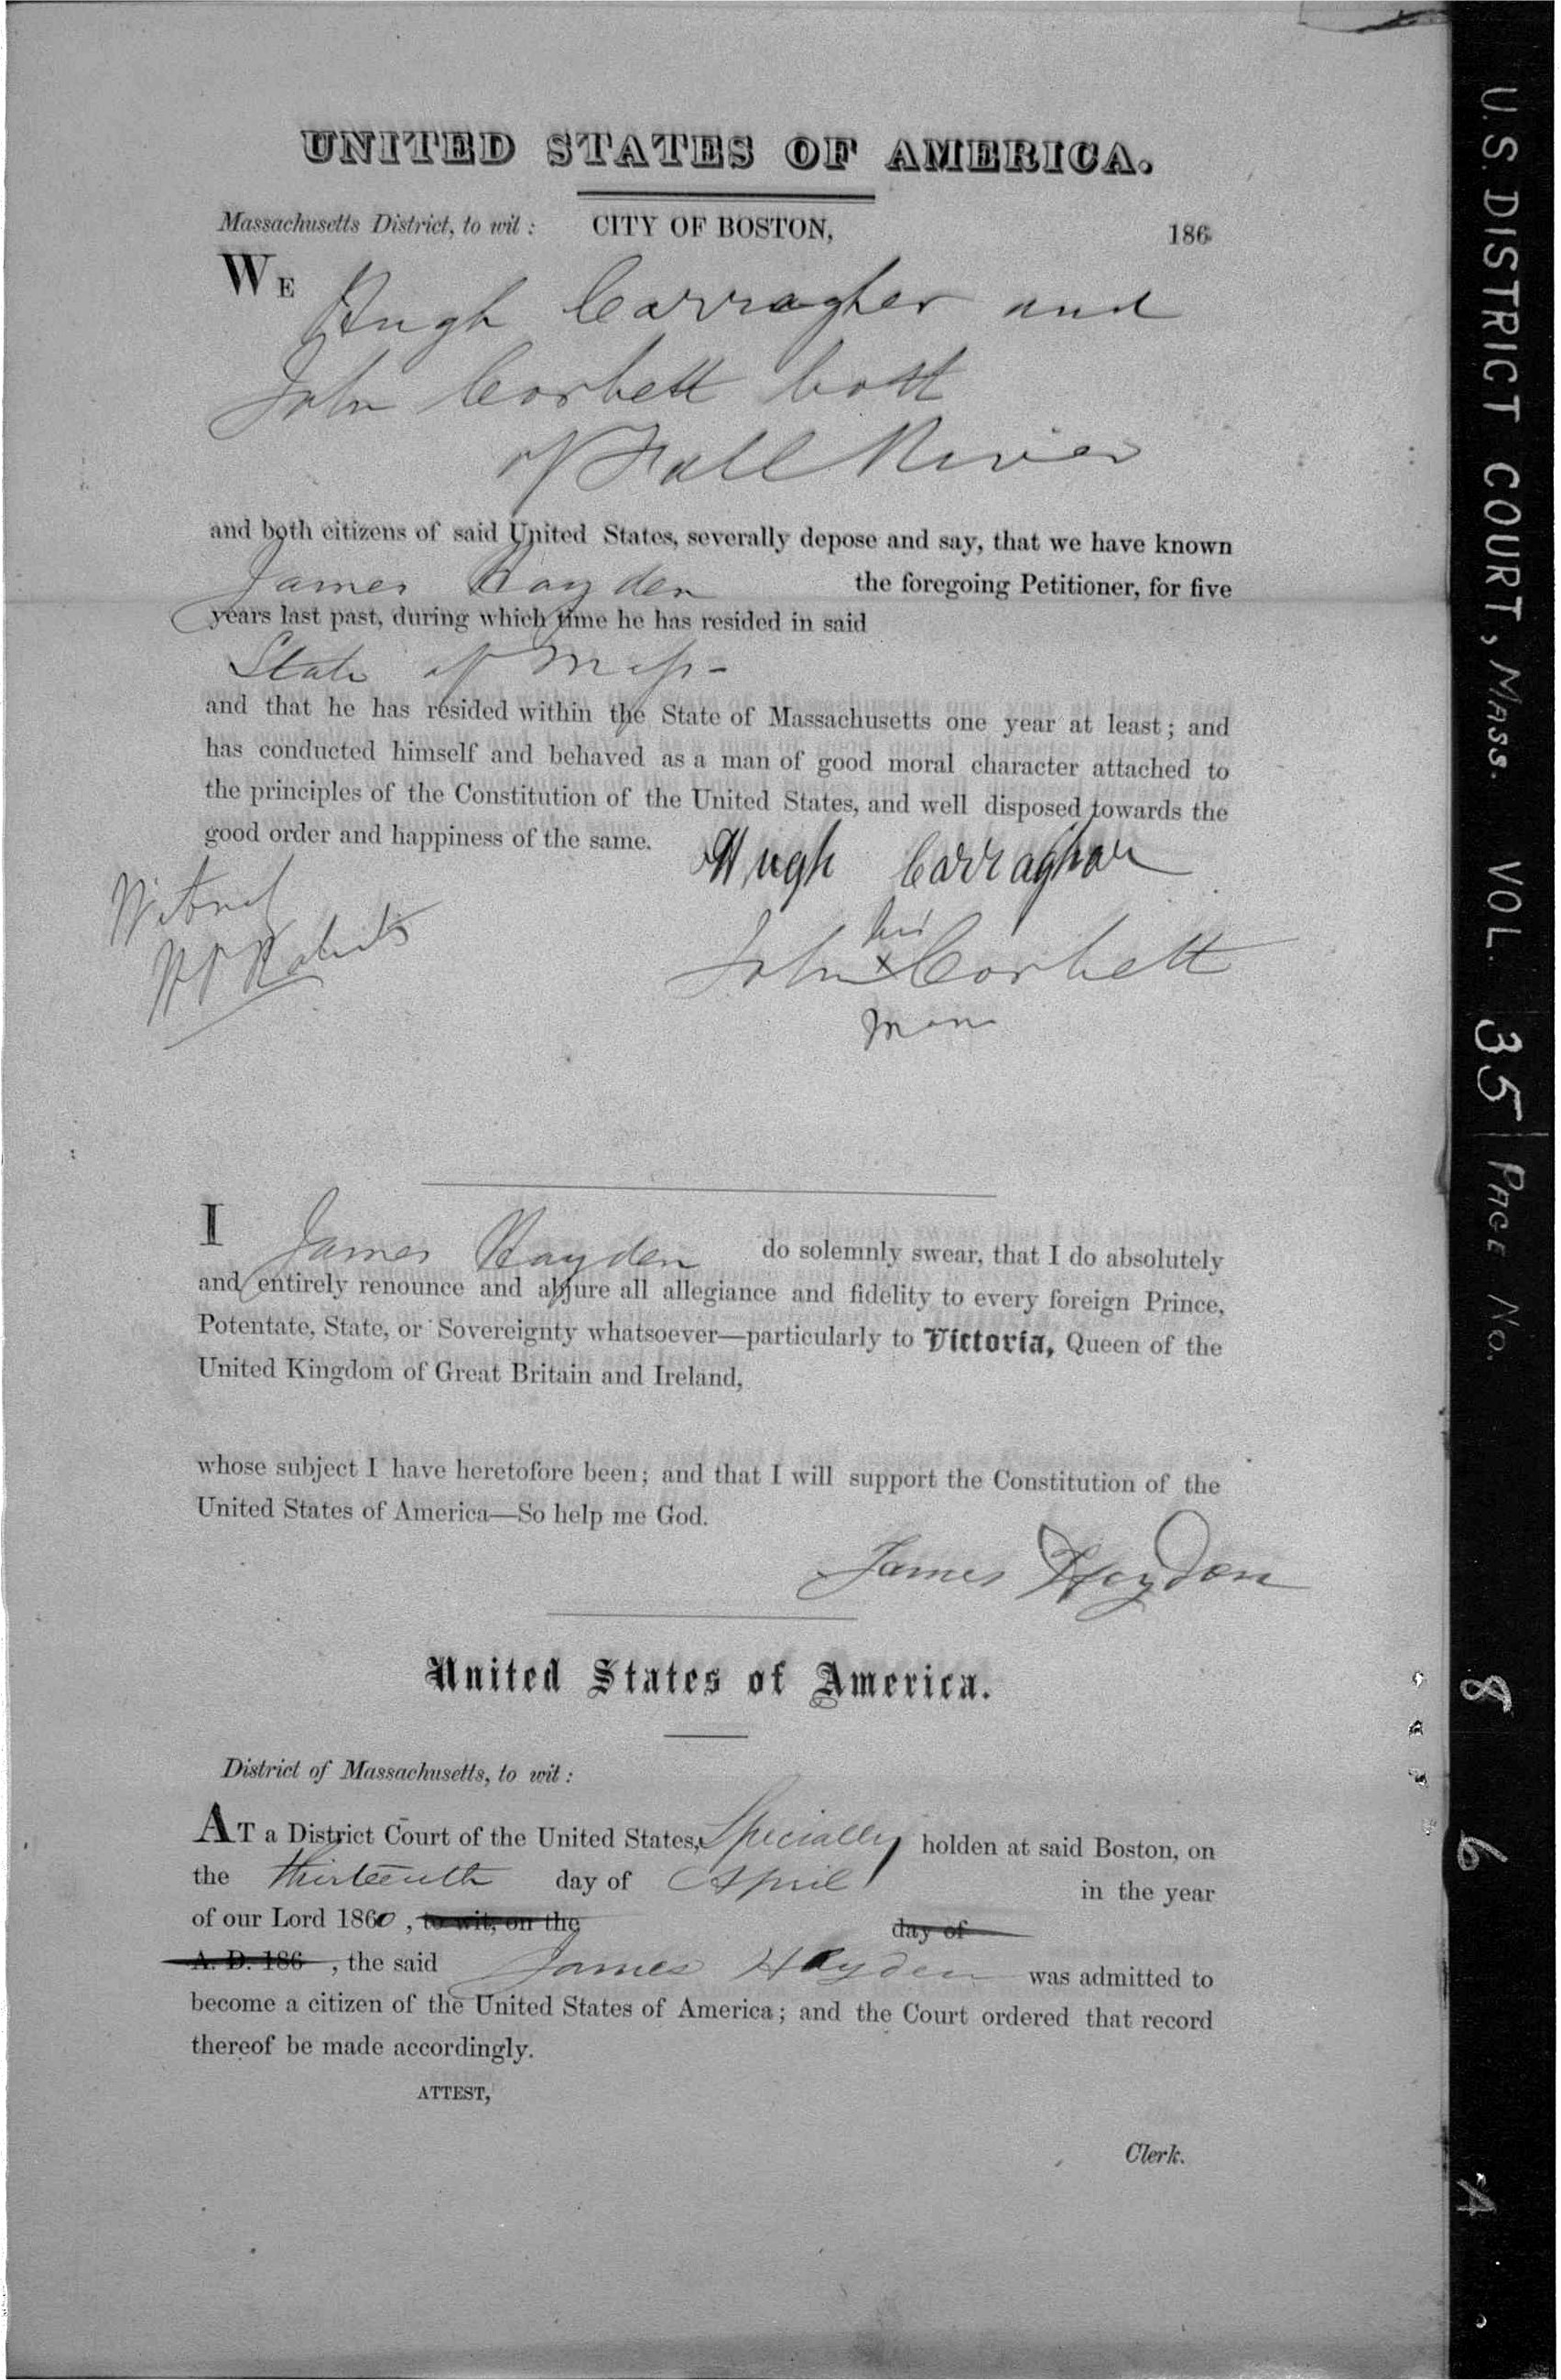 UNITED STATES OF AMERICA.
Massachusetts District, to wit: CITY OF BOSTON, 186
WE Hugh Carragher and
John Corbett both
of Fall River
and both citizens of said United States, severally depose and say, that we have known
James Hayden the foregoing Petitioner, for five
years last past, during which time he has resided in said
State of Mass-
and that he has resided within the State of Massachusetts one year at least; and
has conducted himself and behaved as a man of good moral character attached to
the principles of the Constitution of the United States, and well disposed towards the
good order and happiness of the same.
Hugh Carraghar
Witness
his
John x Corbett
mark
I James Hayden do solemnly swear, that I do absolutely
and entirely renounce and abjure all allegiance and fidelity to every foreign Prince,
Potentate, State, or Sovereignty whatsoever—particularly to Victoria, Queen of the
United Kingdom of Great Britain and Ireland,
whose subject I have heretofore been; and that I will support the Constitution of the
United States of America—So help me God.
James Hayden
United States of America.
District of Massachusetts, to wit:
AT a District Court of the United States, Specially holden at said Boston, on
the thirteenth day of April in the year
of our Lord 1860, to wit, on the day of
A. D. 186 , the said James Hayden was admitted to
become a citizen of the United States of America; and the Court ordered that record
thereof be made accordingly.
ATTEST,
Clerk.
U.S. DISTRICT COURT, MASS. VOL. 35 PAGE NO. 86 A